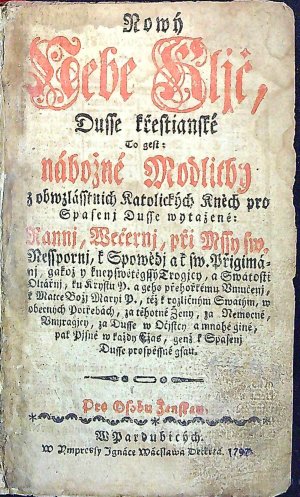 Nowý
Nebe Kljč,
Dusse křestianské
To gest:
nábožné Modlitby
z obwzlásstnich Katolických Kněh pro
Spasenj Dusse wytažené:
Rannj, Wečernj, při Mssy sw.
Nesspornj, k Spowědj a k sw. Přigimá-
nj, gakož y kneyswětěgssý Trogjcy, a Swatosti
Oltářnj, ku Krystu P. a geho přehořkému Vmučenj,
k Matce Božj Maryi P., též k rozličným Swatým, w
obecných Potřebách, za těhotné Ženy, za Nemocné,
Vmjragjcy, za Dusse w Očistcy a mnohé giné,
pak Pjsně w každý Čas, genž k Spasenj
Dusse prospěssné gsau.
Pro Osobu Ženskau.
W Pardubicých.
W Jmpressy Ignáce Wácslawa